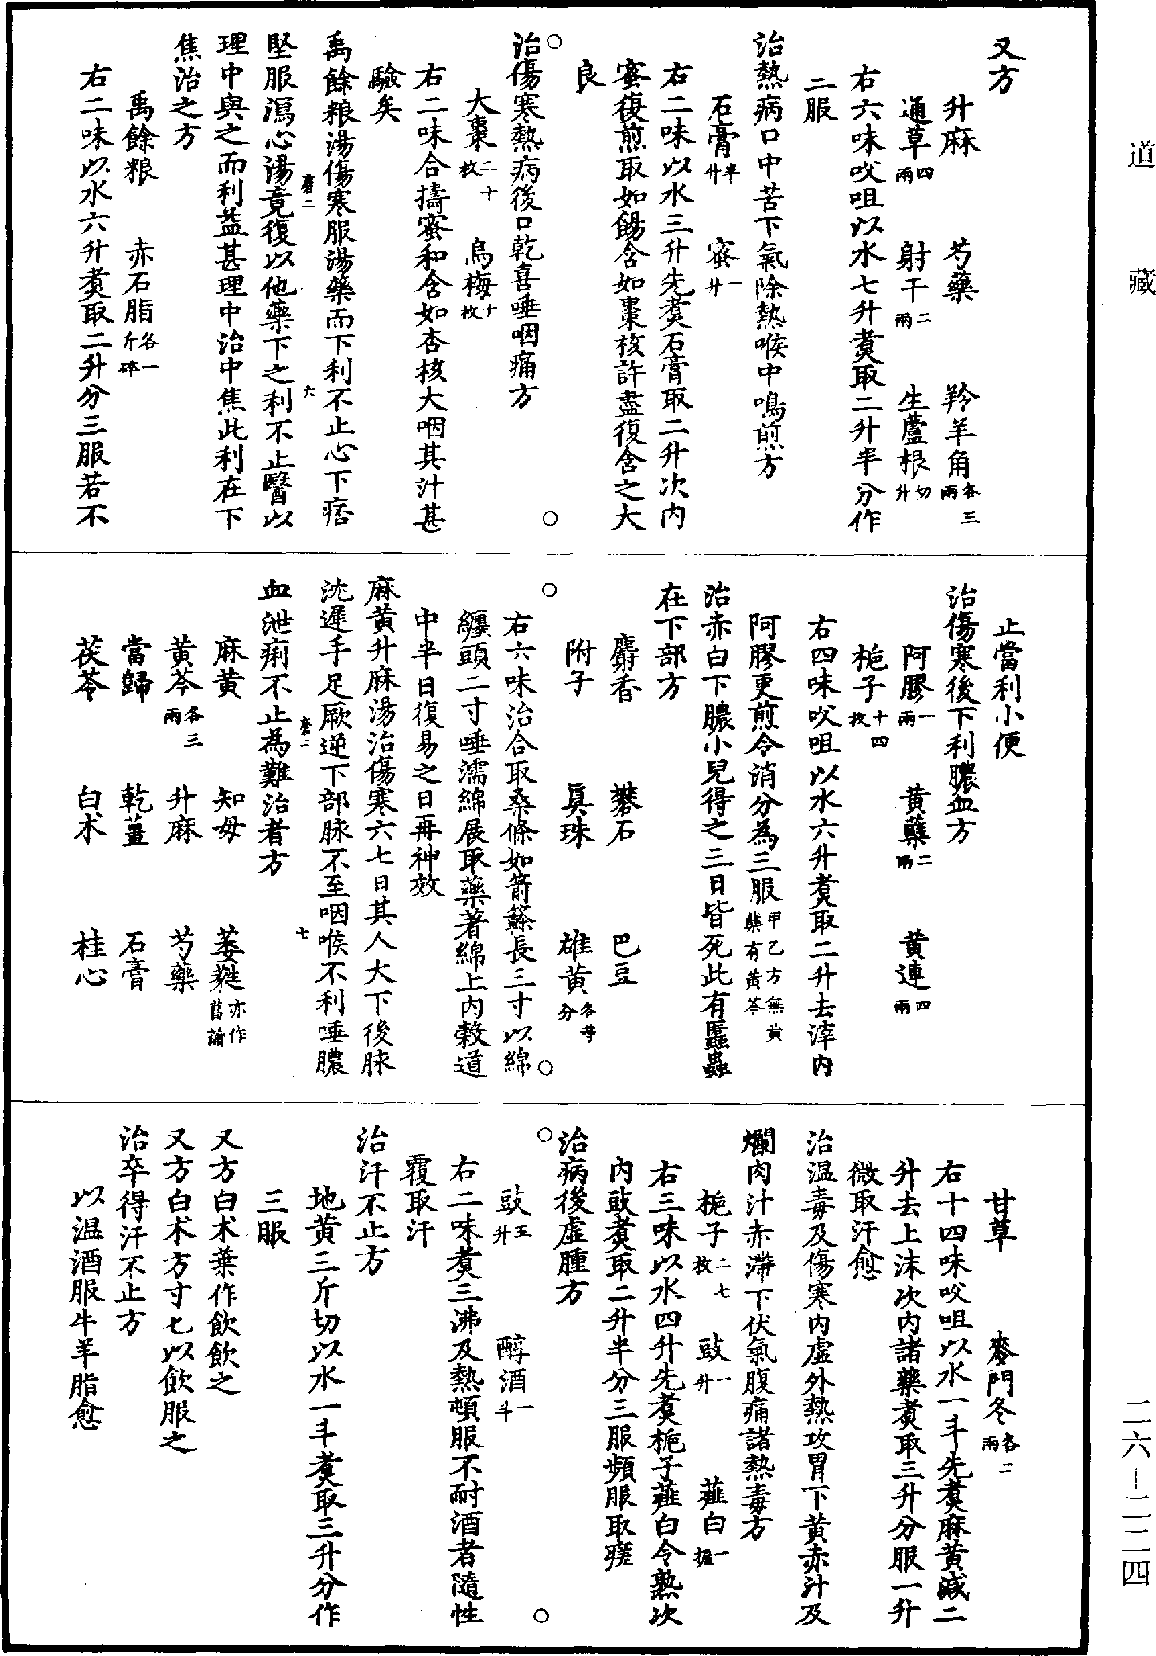 又方
升麻 芍藥 羚羊角各三兩
通草四兩 射干二兩 生蘆根切升
右六味㕮咀以水七升煑取二升半分作
二服
治熱病口中苦下氣除熱喉中鳴煎方
石膏半升 蜜一升
右二味以水三升先煑石膏取二升次内
蜜復煎取如餳含如棗核許盡復含之大
良
治傷寒熱病後口乾喜唾咽痛方
大棗二十枚 烏梅十枚
右二味合擣蜜和含如杏核大咽其汁甚
驗矣
禹餘粮湯傷寒服湯藥而下利不止心下痞
堅服瀉心湯竟復以他藥下之利不止醫以
理中與之而利益甚理中治中焦此利在下
焦治之方
禹餘粮 赤石脂各一斤碎
右二味以水六升煑取二升分三服若不
止當利小便
治傷寒後下利膿血方
阿膠一兩 黄蘗二兩 黄連四兩
梔子十四枚
右四味㕮咀以水六升煑取二升去滓内
阿膠更煎令消分為三服甲乙方無黄蘗有黄芩
治赤白下膿小兒得之三日皆死此有䘌蟲
在下部方
麝香 礬石 巴豆
附子 真珠 雄黄各等分
右六味治合取桑條如箭簳長三寸以綿
纏頭二寸唾濡綿展取藥著綿上内榖道
中半日復易之日再神效
麻黄升麻湯治傷寒六七日其人大下後脉
沈遲手足厥逆下部脉不至咽喉不利唾膿
血泄痢不止為難治者方
麻黄 知母 萎蕤亦作菖蒲
黄芩各三兩 升麻 芍藥
當歸 乾薑 石膏
茯苓 白术 桂心
甘草 麥門冬各二兩
右十四味㕮咀以水一斗先煑麻黄減二
升去上沫次内諸藥煑取三升分服一升
微取汗愈
治温毒及傷寒内虛外熱攻胃下黄赤汁及
爛肉汁赤滯下伏氣腹痛諸熱毒方
梔子二七枚 豉一升 薤白一握
右三味以水四升先煑梔子薤白令熟次
内豉煑取二升半分三服頻服取瘥
治病後虛腫方
豉五升 醇酒一斗
右二味煑三沸及熱頓服不耐酒者隨性
覆取汗
治汗不止方
地黄三斤切以水一斗煑取三升分作
三服
又方白术葉作飲飲之
又方白术方寸匕以飲服之
治卒得汗不止方
以温酒服牛羊脂愈
道藏
二六-二二四